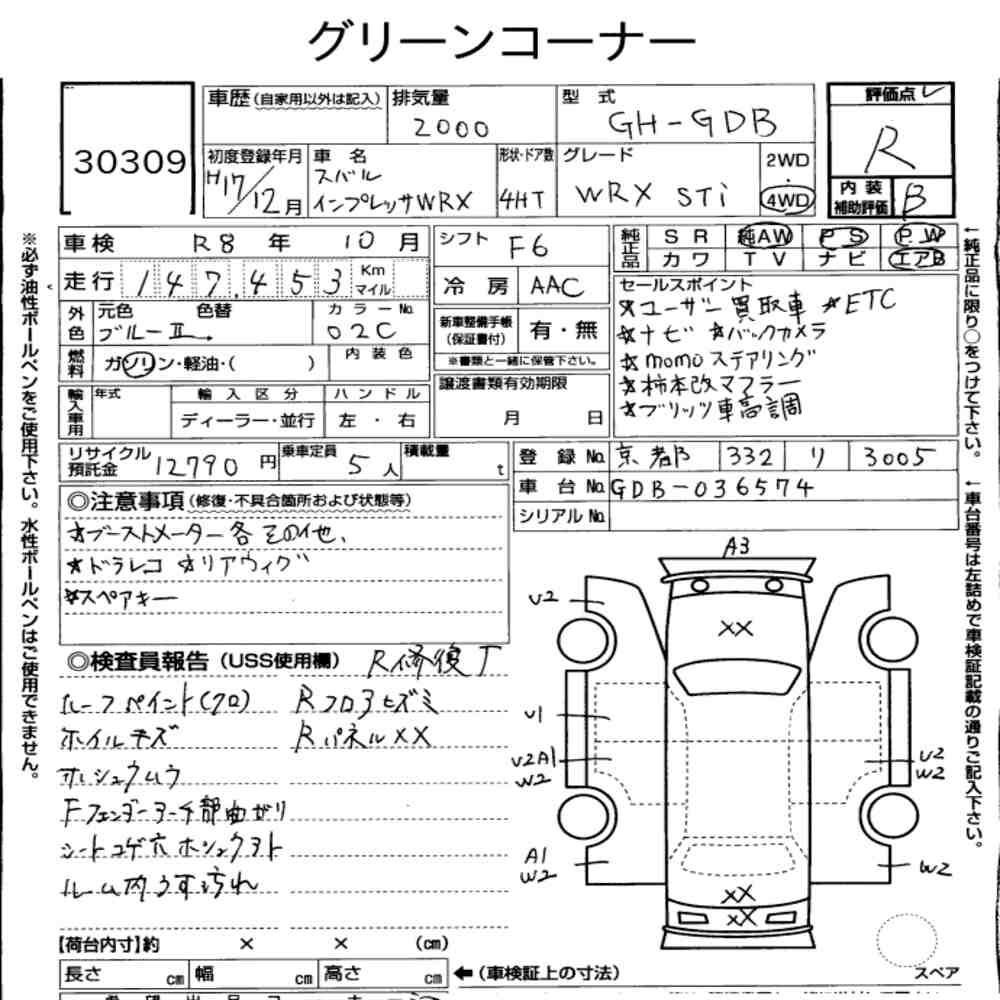 グリーンコーナー
30309
車歴(自家用以外は記入) 排気量 2000 型式 GH-GDB
評価点 R
初度登録年月 H17/12月 車名 スバル インプレッサWRX 形状・ドア数 4HT グレード WRX STi 2WD・4WD
内装補助評価 B
車検 R8年 10月 シフト F6
純正品 SR 純AW PS PW
カワ TV ナビ エアB
走行 147,453 Km マイル
冷房 AAC
セールスポイント
☆ユーザー買取車 ☆ETC
☆ナビ ☆バックカメラ
☆momoステアリング
☆柿本改マフラー
☆ブリッツ車高調
外色 元色 ブルーII 色替 カラーNo. 02C
新車整備手帳(保証書付) 有・無
※書類と一緒に保管下さい。
燃料 ガソリン・軽油・( ) 内装色
譲渡書類有効期限 月 日
輸入車用 年式 輸入区分 ハンドル
ディーラー・並行 左・右
リサイクル預託金 12790円 乗車定員 5人 積載量 t
登録No. 京都 332 リ 3005
車台No. GDB-036574
シリアルNo.
◎注意事項(修復・不具合箇所および状態等)
☆ブーストメーター各その他、
☆ドラレコ ☆リアウィグ
☆スペアキー
◎検査員報告(USS使用欄) R修復了
ルーフペイント(クロ) RフロアヒズミI
ホイルキズ RパネルXX
サンシュウムラ
Fフェンダーアーチ部曲がり
シートコゲ穴ホシュウアト
ルーム内うす汚れ
A3
U2
XX
U1
U2A1
W2
U2
W2
A1
W2
W2
XX
XX
スペア
【荷台内寸】約 × × (cm)
長さ cm 幅 cm 高さ cm
←(車検証上の寸法)
※必ず油性ボールペンをご使用下さい。水性ボールペンはご使用できません。
←純正品に限り○をつけて下さい。
←車台番号は左詰めで車検証記載の通りご記入下さい。